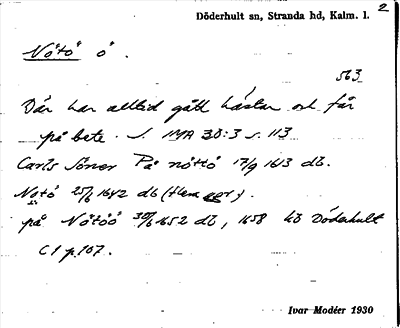 Döderhult sn, Stranda hd, Kalm. l. 2
Nötö ö.
563
Där har alltid gått hästar och får
på bete. S. 
Carls Söner På nöttö 17/9 1613 db.
Nötö 25/6 1642 db (flera ggr).
på Nötöö 30/6 1652 db, 1658 kb Döderhult
C1 p.107.
Ivar Modéer 1930